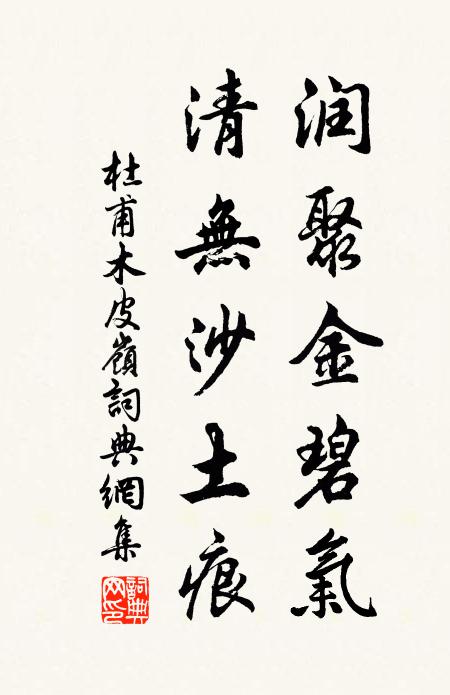 润聚金碧氣
清無沙土痕
杜甫木皮嶺詞典網集
詞典網印